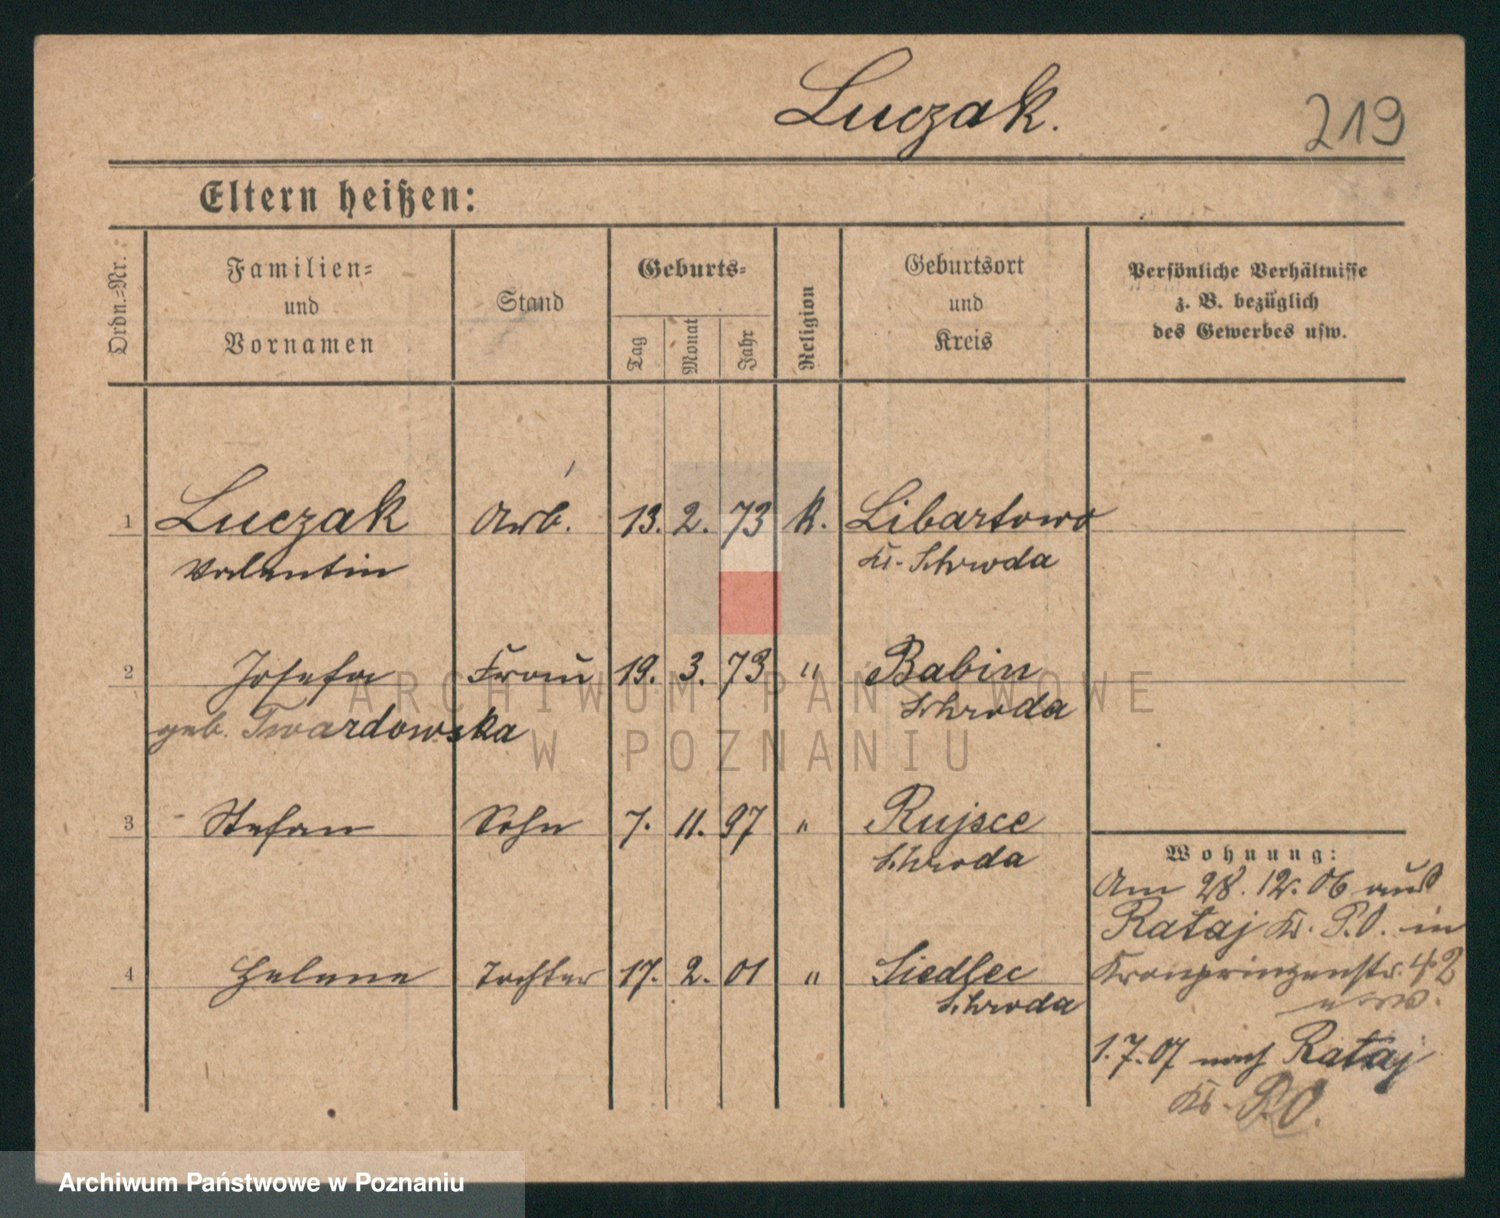 Luczak.
219
Eltern heißen:
Ordn.=Nr.
Familien=
und
Vornamen
Stand
Geburts=
Tag
Monat
Jahr
Religion
Geburtsort
und
Kreis
Persönliche Verhältnisse
z. B. bezüglich
des Gewerbes usw.
1 Luczak Arb. 13. 2. 73 k. Libartowo
Valentin Kr. Schroda
2 Josefa Frau 19. 3. 73 " Babin
geb. Twardowska Schroda
3 Stefan Sohn 7. 11. 97 " Rujsce
Schroda
4 Helene Tochter 17. 2. 01 " Siedlec
Schroda
Wohnung:
Am 28. 12. 06 aus
Rataj Kr. P.O. in
Kronprinzenstr. 42
1.7.07 nach Rataj
Kr. P.O.
ARCHIWUM PAŃSTWOWE
W POZNANIU
Archiwum Państwowe w Poznaniu